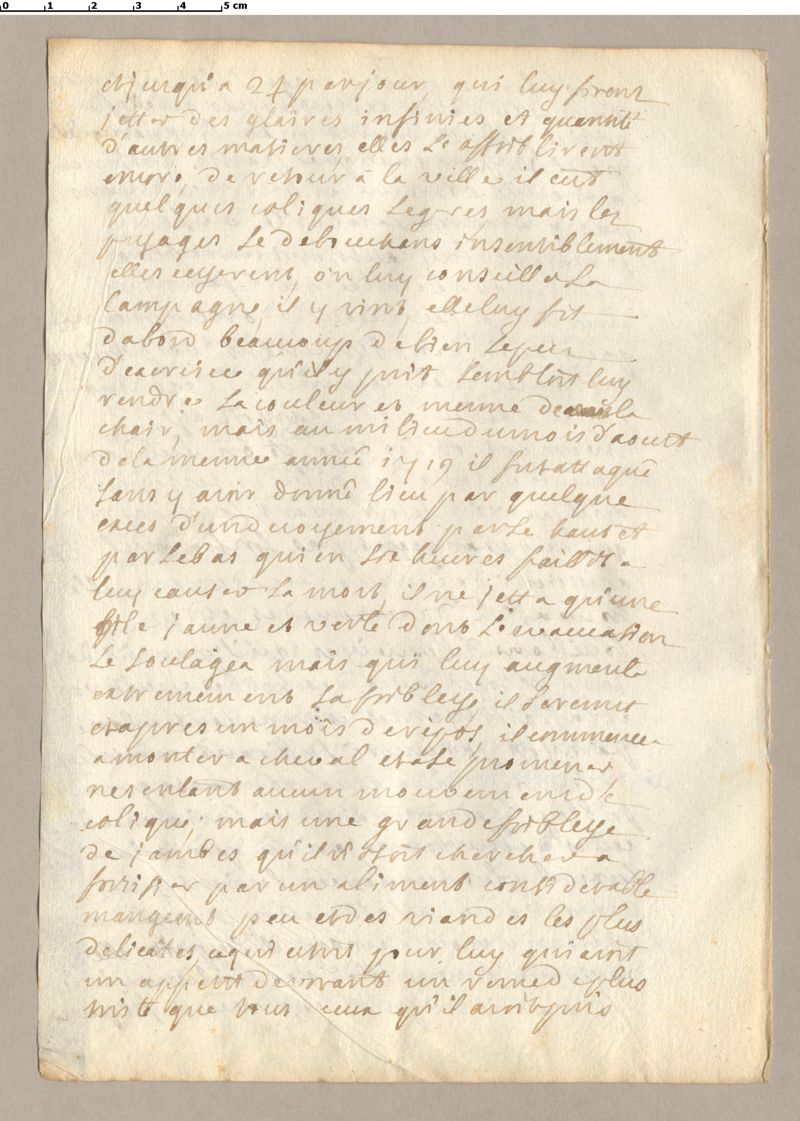 0 1 2 3 4 5 cm
et jusqu'a 2# par jour, qui luy firent
jetter des glaires infinies et quantité
d'autres matieres, elles le affoiblirent
encore, de retour à la ville il eut
quelques coliques legeres, mais les
passages se debouchans insensiblement
elles cesserent, on luy conseilla la
campagne, il y vint, elle luy fit
d'abord beaucoup de bien le peu
d'exercice qu'il y prit sembloit luy
rendre la couleur et mesme de la
chair, mais au milieu du mois d'aoust
de la mesme année 1719 il fut attaqué
sans y avoir donné lieu par quelque
exces d'un devoyement par le haut et
par le bas qui en six heures faillit a
luy causer la mort, il ne jetta qu'une
bile jaune et verte dont l'evacuation
le soulagea mais qui luy augmenta
extremement la foiblesse, il s'en remit
et apres un mois de repos, il commença
a monter a cheval et a se promener
ressentant aucun mouvement de
colique, mais une grande foiblesse
de jambes qu'il chercher a
fortifier par un aliment considerable
mangeant peu et des viandes les plus
delicates, ce qui estoit pour luy qui avoit
un appetit devorant un remede plus
triste que tous ceux qu'il avoit pris